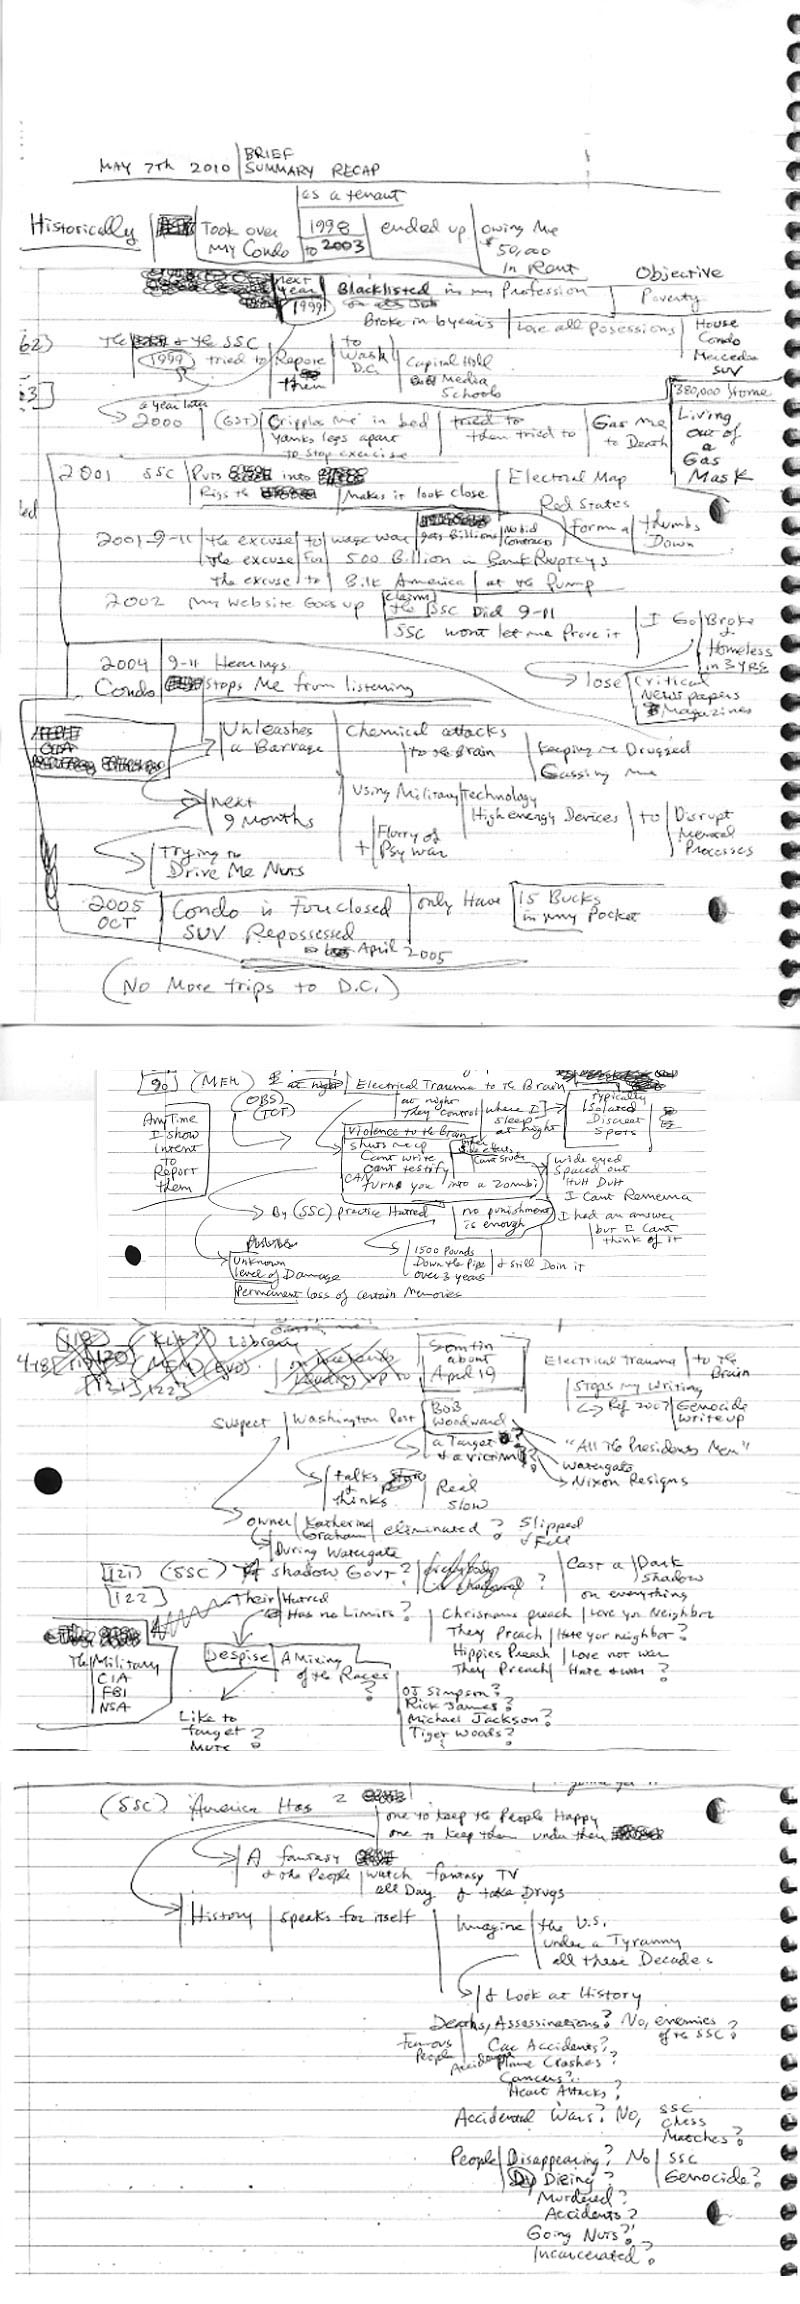 MAY 7TH 2010 BRIEF
SUMMARY RECAP
as a tenant
Historically Took over 1998 ended up owing me
my Condo to 2003 $50,000
in Rent
next year 1999 Blacklisted in my Profession Objective
Poverty
Broke in 6 years Lose all Posessions House
Condo
Mercedes
SUV
62) The & the SSC to
(1999) tried to Repose Wash Capital Hill
them D.C. Media
Schools
3]
a year later
2000 (GST) Cripples me in bed tried to Gas me
Yanks legs apart then tried to to Death
to stop exercise
380,000 Home
Living
out of
a
Gas
Mask
2001 SSC Puts into Electoral Map
Rigs the Makes it look close Red States
2001-9-11 the excuse to wage war gets Billions No bid Contracts form a thumbs
Down
the excuse for 500 Billion in BankRuptcys
the excuse to Bilk America at the Pump
2002 my website Goes up claim
the SSC Did 9-11
SSC wont let me Prove it I Go Broke
&
Homeless
in 3 YRS
2004 9-11 Hearings
Condo stops Me from listening
lose Critical
News papers
Magazines
CIA
Unleashes Chemical attacks
a Barrage to the Brain Keeping me Drugged
Gassing me
next Using Military Technology
9 Months High energy Devices to Disrupt
Mental
Processes
+ Flurry of
Psy war
Trying to
Drive Me Nuts
2005 Condo is Foreclosed only Have 15 Bucks
OCT SUV Repossessed in my Pocket
April 2005
(No More trips to D.C.)
90 (MEM) at night Electrical Trauma to the Brain
(OBS)
(TCT)
at night
They control where I
sleep
at night
typically
Isolated
Discreet
Spots
Any Time
I show
intent
to
Report
them
Violence to the Brain
shuts me up
Cant write
Cant testify
Cant Study
CAN turns you into a Zombi
wide eyed
Spaced out
HUH DUH
I Cant Remema
I had an answer
but I Cant
think of it
By (SSC) practice Hatred no punishment
is enough
Unknown
level of Damage
1500 Pounds
Down the Pipe & still Doin it
over 3 years
Permanent loss of certain Memories
[118] (KLA) Library
(MEM) (EVD)
leading up to
[121] 122]
Somtin
about
April 19
Electrical trauma to the
Brain
Stops my writing
Ref 2007 Genocide
write up
Suspect Washington Post BOB
Woodward
a Target ?
& a victim ?
"All the Presidents Men"
Watergate
Nixon Resigns
talks
&
thinks
Real
Slow
owner Katherine
Graham eliminated ? Slipped
& Fell
During Watergate
[121] (SSC) A shadow Govt ? ? Cast a Dark
shadow
on everything
[122]
Their Hatred
Has no Limits ?
Christians preach Love you Neighbor
They Preach Hate your neighbor ?
Hippies Preach Love not war
They Preach Hate & war ?
The Military
CIA
FBI
NSA
Despise A Mixing
of the Races
?
Like to
target
more ?
OJ Simpson ?
Rick James ?
Michael Jackson ?
Tiger Woods ?
(SSC) America Has 2
one to keep the People Happy
one to keep them under their
A fantasy
& the People watch fantasy TV
all Day & take Drugs
History speaks for itself Imagine the U.S.
under a Tyranny
all these Decades
& Look at History
Deaths, Assassinations ? No, enemies
of the SSC ?
Famous
People
Car Accidents ?
Plane Crashes ?
Cancers ?
Heart Attacks ?
Accidental Wars ? No, SSC
Chess
Matches ?
People Disappearing ? No SSC
Genocide ?
Dieing ?
Murdered ?
Accidents ?
Going Nuts ?
Incarcerated ?